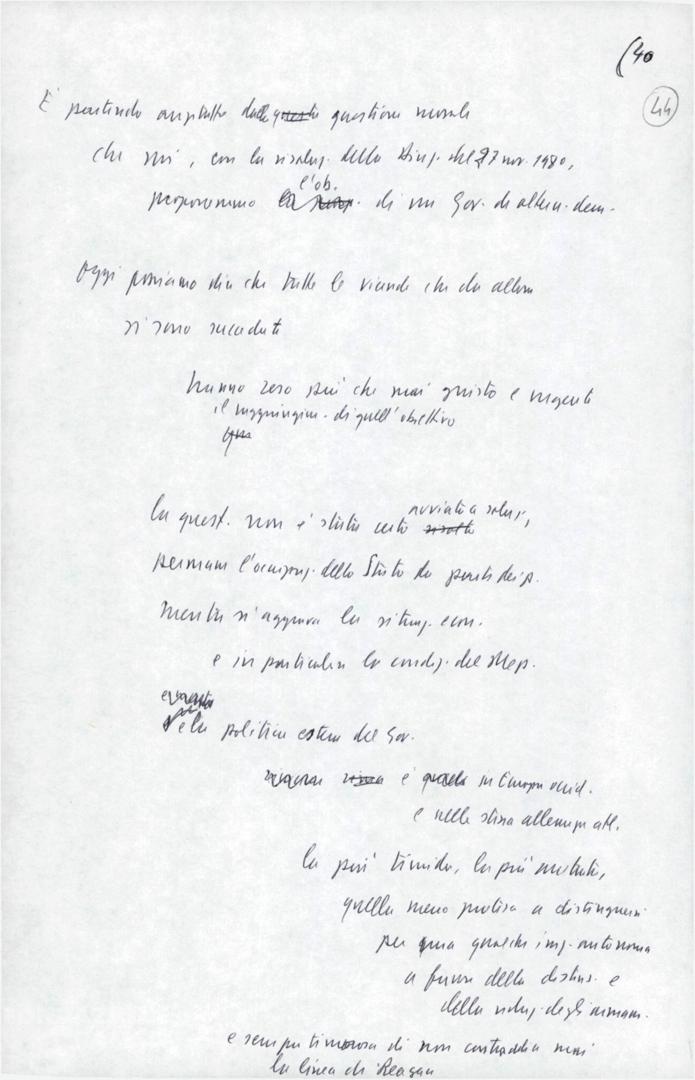 (40
44
È partendo anzitutto dalla questione morale
che noi, con la risoluz. della Direz. del 27 nov. 1980,
l'ob.
proponemmo di un Gov. di altern. dem.
Oggi possiamo dire che tutte le vicende che da allora
si sono succedute
hanno reso più che mai giusto e urgente
il raggiungim. di quell'obiettivo
avviata a soluz.,
la quest. non è stata certo risolta
permane l'occupaz. dello Stato da parte dei p.
mentre si aggrava la situaz. econ.
e in particolare la condiz. del Mezz.
e la politica estera del Gov.
è quella in Europa occid.
e nella stessa alleanza atl.
la più timida, la più
quella meno a distinguersi
per una qualche iniz. autonoma
a favore della distens. e
della riduz. degli armam.
e sempre timorosa di non contraddire mai
la linea di Reagan